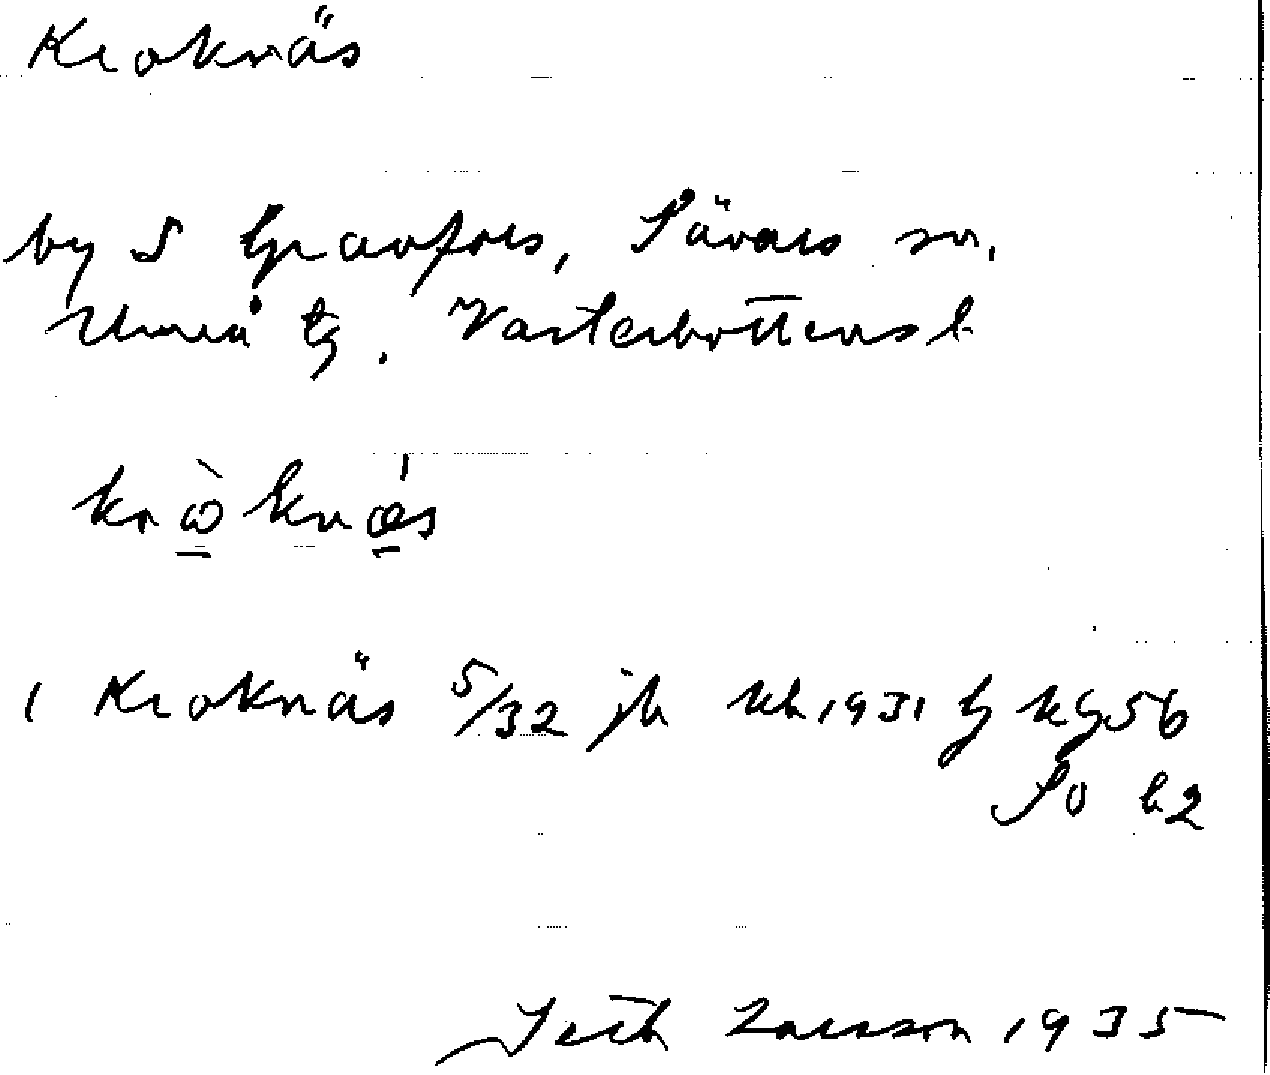 Kroknäs
by S Gravfors, Sävars sn,
Umeå tg. Västerbottens l.
krò̱knǽ̱s
1 Kroknäs 5/32 jb kb 1931 kg 56
So b2
Larsson 1935